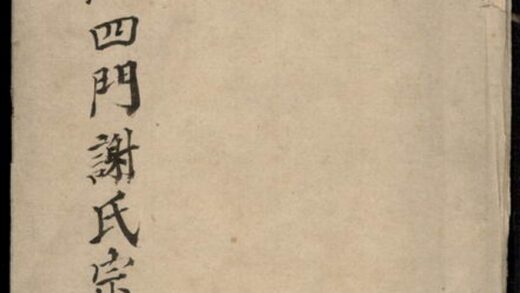 四門謝氏宗